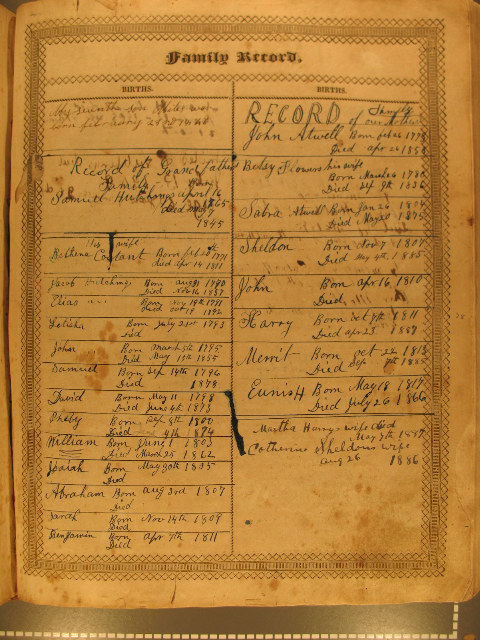 Family Record.
BIRTHS.
Record of Grand father
Family
Samuel Hutchings Born April 16
1765
Died May 7
1845
His wife
Bethena Constant Born Feb 20th 1771
Died Apr 14 1811
Jacob Hutchings Born Aug 31 1790
Died Nov 16 1857
Elias " " Born Nov 18th 1791
Died Oct 18 1892
Letisha Born July 21st 1793
Died
John " " Born March 5th 1795
Died May 15th 1855
Samuel Born Sep 14th 1796
Died 1878
David Born May 11 1798
Died June 4th 1873
Pheby Born Sep 8th 1800
Died 4th 1874
William Born June 1 1803
Died March 25 1862
Josiah Born May 30th 1805
Died
Abraham Born Aug 3rd 1807
Died
Sarah Born Nov 14th 1809
Died
Benjamin Born Apr 7th 1811
Died
BIRTHS.
RECORD of Family
of our Mothers
John Atwell Born Feb 26 1778
Died Apr 26 1858
Betsey Flowers his wife
Born March 6 1780
Died Sep 9th 1836
Sabra Atwell Born Jan 24 1804
Died May 20 1875
Sheldon Born Nov 7 1807
Died May 4th 1885
John Born Apr 16 1810
Died " "
Harry Born Oct 9th 1811
Died Apr 23 1869
Merrit Born Oct 22 1813
Died Sep 7th 1885
Eunis H Born May 18 1817
Died July 26 1866
Martha Harrys wife died
May 7th 1887
Catherine Sheldons wife
Aug 26 1886